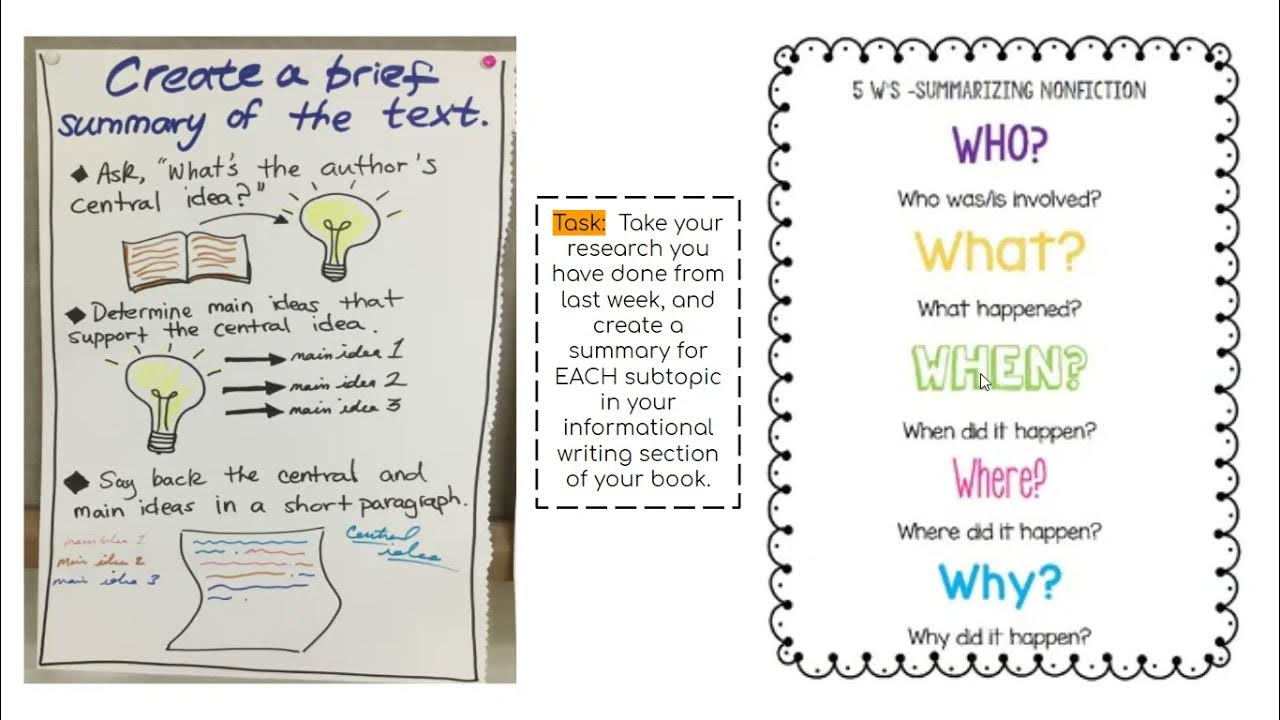 Create a brief
summary of the text.
Ask, "What's the author's
central idea?"
Determine main ideas that
support the central idea.
main idea 1
main idea 2
main idea 3
Say back the central and
main ideas in a short paragraph.
main idea 1
main idea 2
main idea 3
central
idea
Task: Take your
research you
have done from
last week, and
create a
summary for
EACH subtopic
in your
informational
writing section
of your book.
5 W'S -SUMMARIZING NONFICTION
WHO?
Who was/is involved?
What?
What happened?
WHEN?
When did it happen?
Where?
Where did it happen?
Why?
Why did it happen?